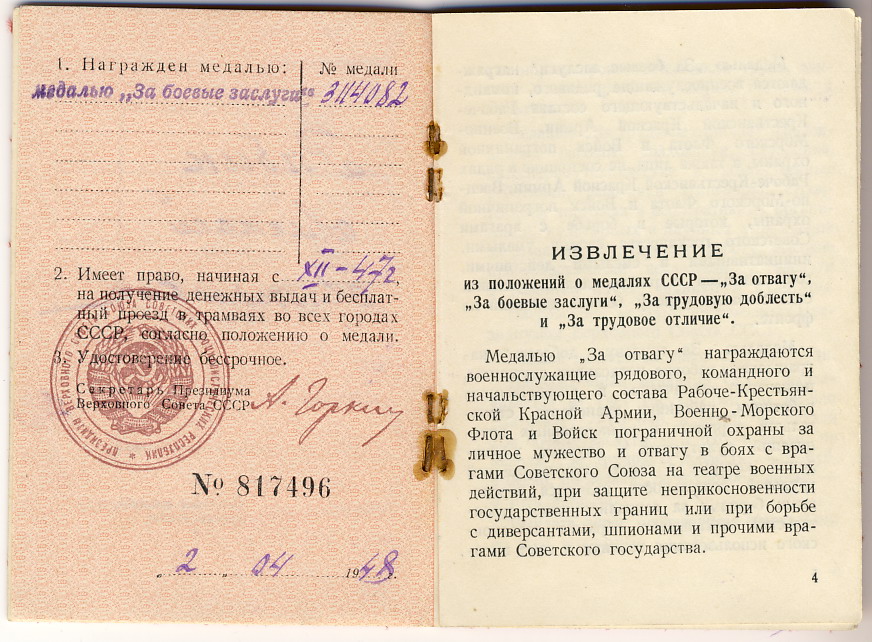 1. Награжден медалью: № медали
медалью „За боевые заслуги“ 3114082
2. Имеет право, начиная с XII-47г,
на получение денежных выдач и бесплат-
ный проезд в трамваях во всех городах
СССР, согласно положению о медали.
3. Удостоверение бессрочное.
Секретарь Президиума
Верховного Совета СССР А. Горкин
№ 817496
„ 2 „ 04 1948г.
ИЗВЛЕЧЕНИЕ
из положений о медалях СССР—„За отвагу“,
„За боевые заслуги“, „За трудовую доблесть“
и „За трудовое отличие“.
Медалью „За отвагу“ награждаются
военнослужащие рядового, командного и
начальствующего состава Рабоче-Крестьян-
ской Красной Армии, Военно-Морского
Флота и Войск пограничной охраны за
личное мужество и отвагу в боях с вра-
гами Советского Союза на театре военных
действий, при защите неприкосновенности
государственных границ или при борьбе
с диверсантами, шпионами и прочими вра-
гами Советского государства.
4